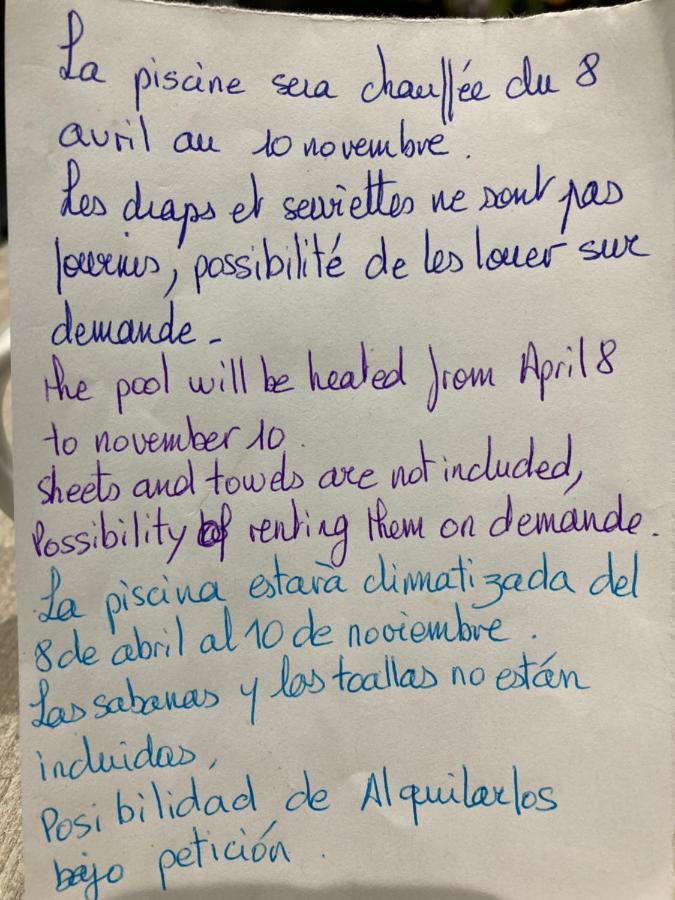 La piscine sera chauffée du 8
avril au 10 novembre.
Les draps et serviettes ne sont pas
fournis, possibilité de les louer sur
demande -
the pool will be heated from April 8
to november 10.
sheets and towels are not included,
Possibility of renting them on demande.
La piscina estarà climatizada del
8 de abril al 10 de noviembre.
Las sabanas y las toallas no están
incluidas,
Posibilidad de Alquilarlos
bajo petición.